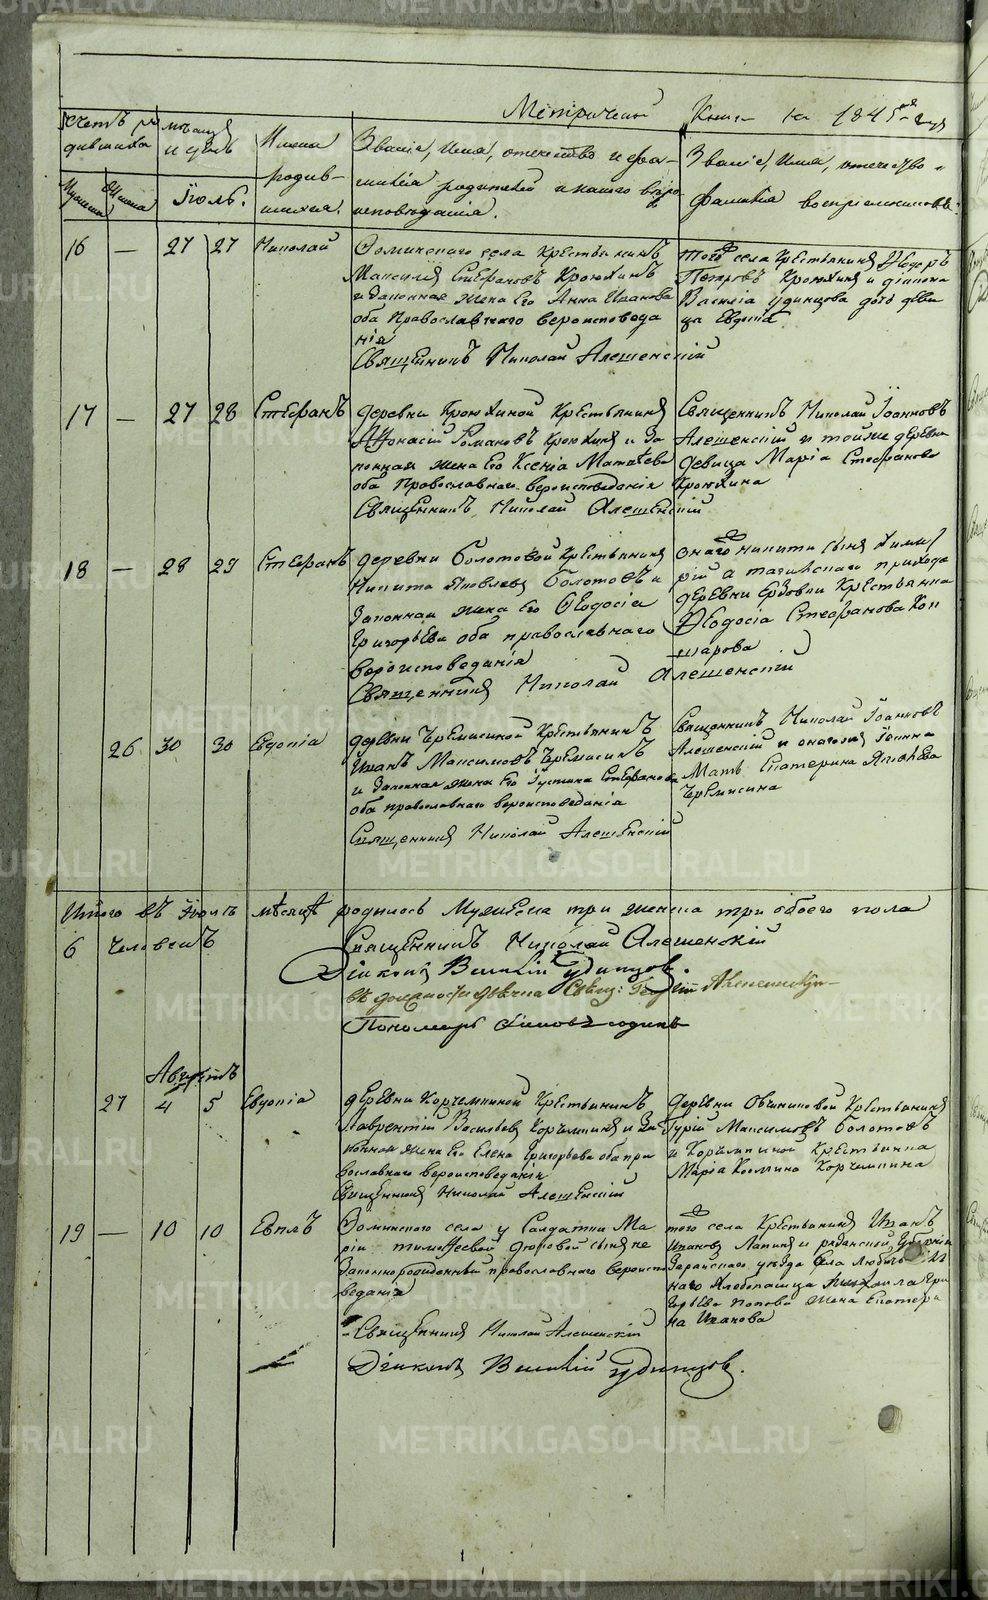 METRIKI.GASO-URAL.RU
Метрической Книги на 1845 года
Счетъ родившихся
мѣсяцъ и день
Имена родившихся.
Званіе, имя, отечество и фамилія родителей и какого вѣроисповѣданія.
Званіе, имя, отечество и фамилія воспріемниковъ.
Мужска Женска
Іюль.
16 — 27 27 Николай
Фоминскаго села Крестьянинъ
Максимъ Стефановъ Крюкинъ
и законная жена Его Анна Иванова
оба Православнаго вероисповеда
нія
Священникъ Николай Алешенскій
того села Крестьянинъ Федеръ
Петровъ Крюкинъ и діакона
Василія Удинцова дочь деви
ца Евдокія
17 — 27 28 Стефанъ
деревни Крюкиной Крестьянинъ
Афонасій Романовъ Крюкинъ и за
конная жена Его Ксенія Матвѣева
оба Православнаго вероисповеданія
Священникъ Николай Алешенскій
Священникъ Николай Іоанновъ
Алешенскій и тойже деревни
девица Марія Стефанова
Крюкина
18 — 28 29 Стефанъ
деревни Болотовой Крестьянинъ
Никита Яковлевъ Болотовъ и
законная жена Его Феодосія
Григорьева оба православнаго
вероисповеданія
Священникъ Николай Алешенскій
онаго никиты сынъ
рій а тагильскаго прихода
деревни Ершовки Крестьянка
Феодосія Стефанова Коп
шарова
26 30 30 Евдокія
деревни Черемисиной Крестьянинъ
Иванъ Максимовъ Черемисинъ
и законная жена Его Іустина Стефанова
оба православнаго вероисповеданія
Священникъ Николай Алешенскій
Священникъ Николай Іоанновъ
Алешенскій и онагожъ Іоанна
Мать Екатерина Яковлева
Черемисина
Итого въ Іюлѣ мѣсяцѣ родилось Мужеска три женска три обоего пола
6 человекъ
Священникъ Николай Алешенскій
Діаконъ Василій Удинцов.
въ должности дьячка
Пономарь
Августъ
27 4 5 Евдокія
деревни Корчемкиной Крестьянинъ
Лаврентій Васильевъ Корчемкинъ и за
конная жена Его Елена Григорьева оба пра
вославнаго вероисповеданія
Священникъ Николай Алешенскій
деревни Овчинниковой Крестьянинъ
Гурій Максимовъ Болотовъ
и Корчемкиной Крестьянка
Марія Козмина Корчемкина
19 — 10 10 Евплъ
Фоминскаго села у Салдатки Ма
ріи тимофеевой сынъ не
законнорожденный православнаго вероиспо
веданія
Священникъ Николай Алешенскій
Діаконъ Василій Удинцов.
того села Крестьянинъ Иванъ
Ивановъ Лапинъ и рязанской Губерніи
Зарайскаго уезда села
наго Хлебопашца Гри
горьева Попова жена Екатери
на Иванова